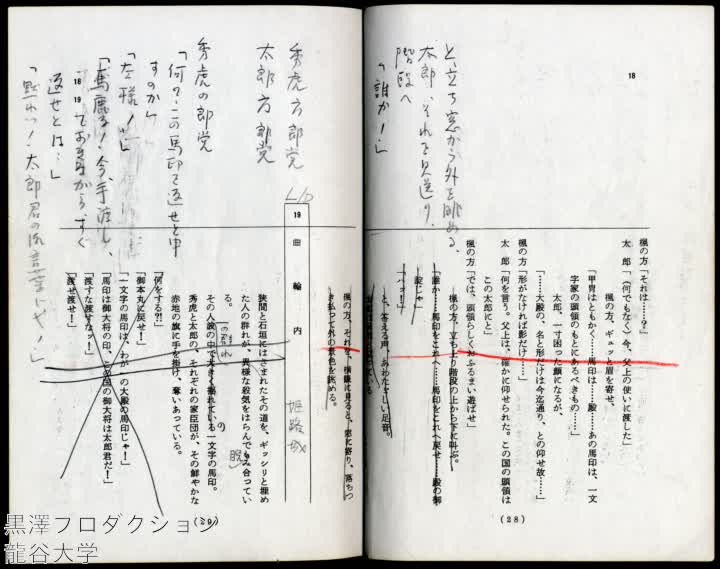 18
と立ち窓から外を眺める、
太郎、それを見送り、
階段へ
「誰か！」
楓の方「それは……？」
太郎「（何でもなく）今、父上の使いに渡した」
楓の方、ギュッと眉を寄せ、
「甲冑はともかく……馬印は……殿……あの馬印は、一文
字家の頭領のもとにあるべきもの……」
太郎、一寸困った顔になるが、
「……大殿の、名と形だけは今迄通り、との仰せ故……」
楓の方「形がなければ影だけ……」
太郎「何を言う。父上は、確かに仰せられた。この国の頭領は
この太郎にと」
楓の方「では、頭領らしくおふるまい遊ばせ」
楓の方、立ち上り階段の上から下に叫ぶ。
「誰か……馬印をこれへ……馬印をこれへ戻せ……殿の御
諚じゃ」
「ハッ！」
と、答える声、あわただしい足音。
(28)
楓の方、それを、横眼に見ると、窓に寄り、落ちつ
き払って外の景色を眺める。
19 曲輪内
姫路城
狭間と石垣にはさまれたその道を、ギッシリと埋め
た人の群れが、異様な殺気をはらんでもみ合ってい
る。
その人波の中で大きく揺れている一文字の馬印。
秀虎と太郎の、それぞれの家臣団が、その鮮やかな
赤地の旗に手を掛け、奪いあっている。
「何をする!?」
「御本丸に戻せ！」
「一文字の馬印は、わが 大殿の馬印じゃ！」
「馬印は御大将の印、この国の御大将は太郎君だ！」
「渡すな渡すなッ！」
「渡せ渡せ！」
秀虎方郎党
太郎方郎党
秀虎の郎党
「何？この馬印を返せと申
すのか」
「左様！」
「馬鹿な！今、手渡し、
ておきながら、すぐ
返せとは…」
「黙れっ！太郎君の御言葉じゃ！」
(29)
黒澤プロダクション
龍谷大学